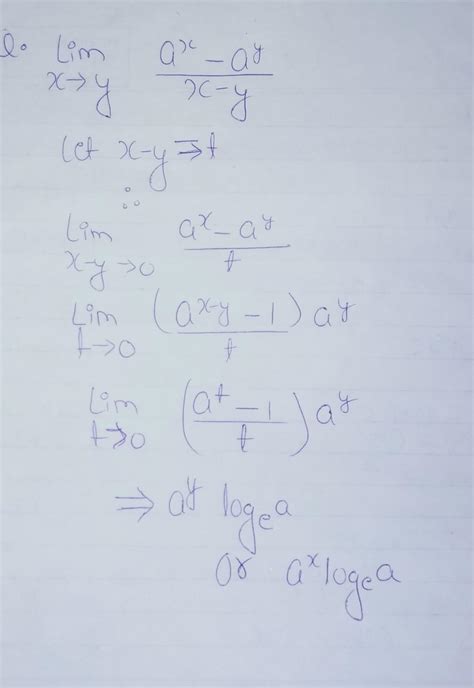 Q. Lim x→y (a^x − a^y)/(x−y)
Let x−y ⇒ t
∴
Lim x−y→0 (a^x − a^y)/t
Lim t→0 ((a^(x−y) − 1)/t) a^y
Lim t→0 ((a^t − 1)/t) a^y
⇒ a^y log_e a
Or a^x log_e a